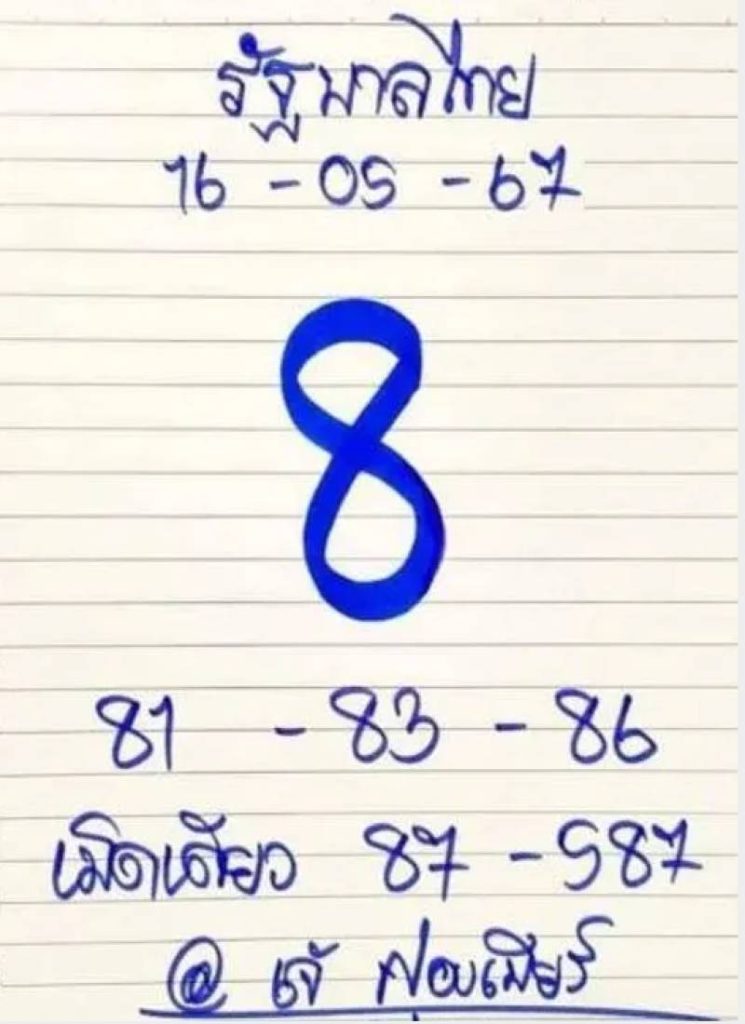 รัฐบาลไทย
16 - 05 - 67
8
81 - 83 - 86
เม็ดเดียว 87 - 587
@ เจ๊